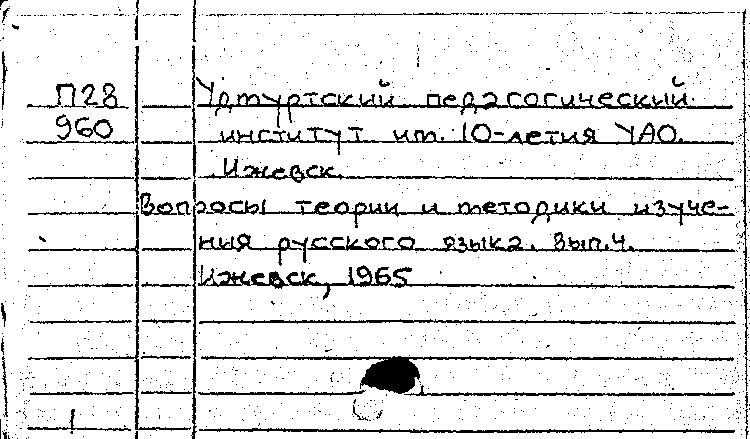 П28 Удмуртский педагогический
960 институт им. 10-летия УАО.
Ижевск.
Вопросы теории и методики изуче-
ния русского языка. Вып.4.
Ижевск, 1965